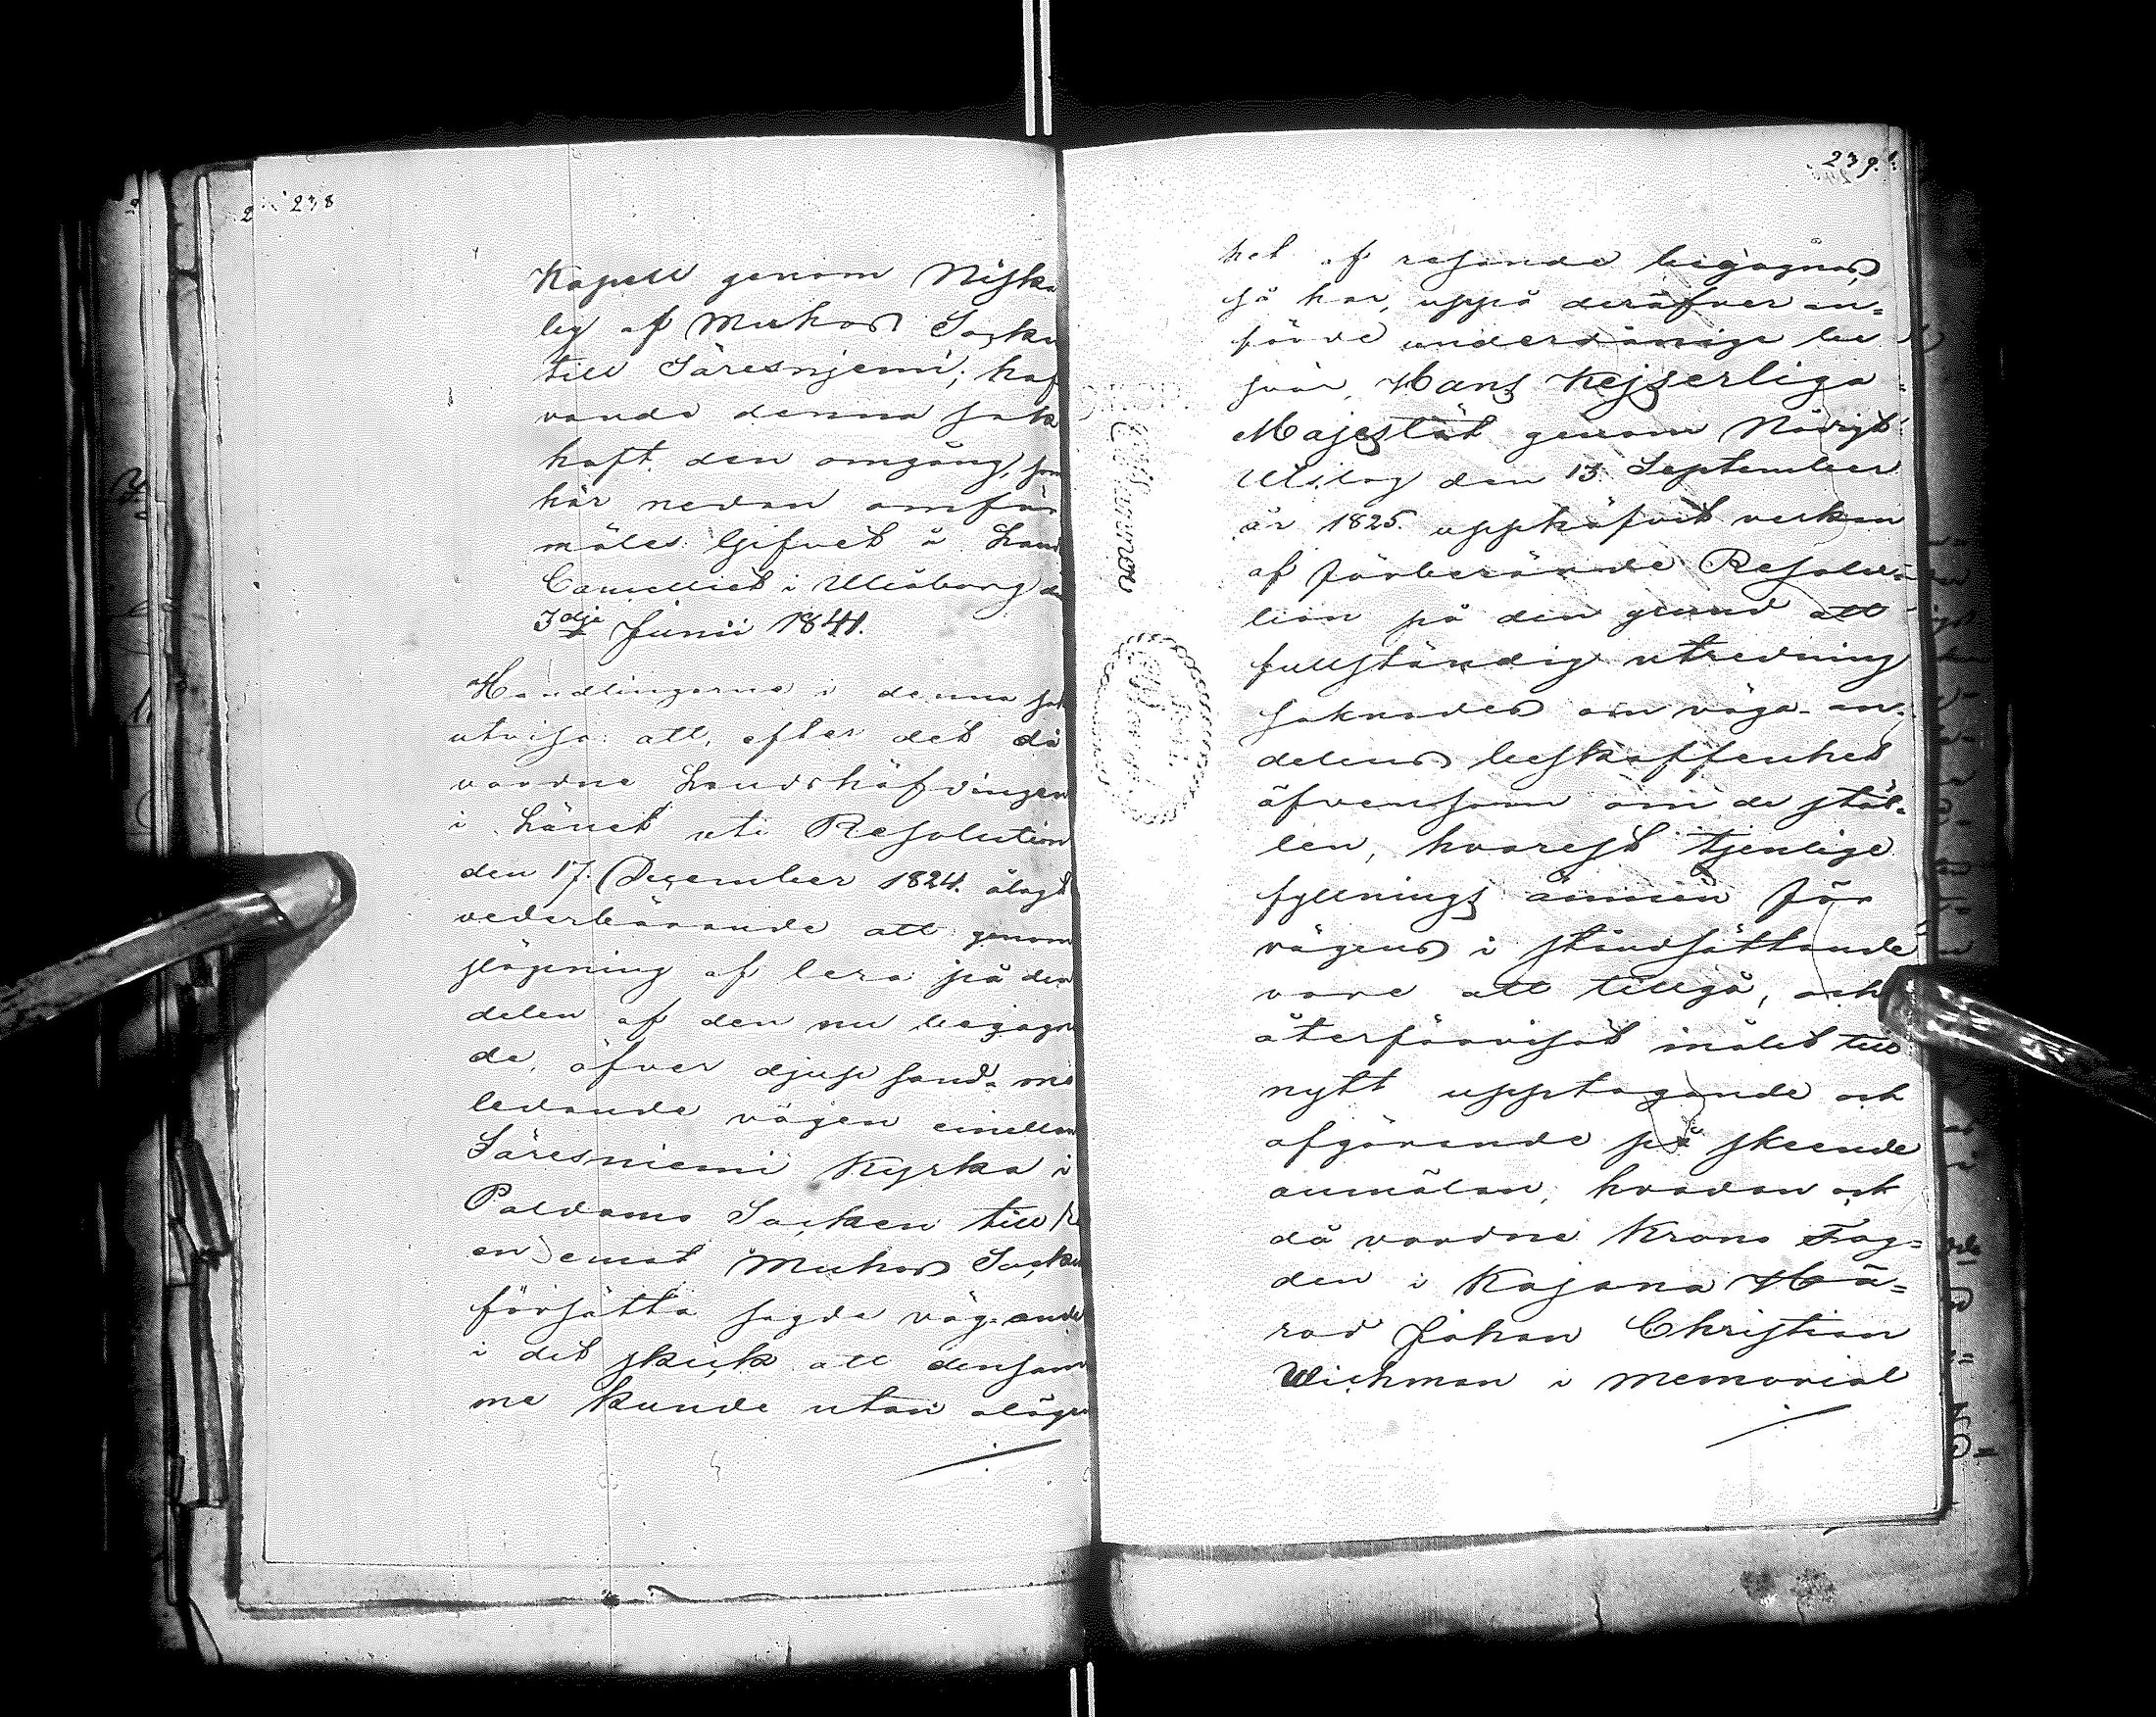 238
Kapell genom Niska
by af Muhos Socken
till Säresnjemi; haf
vande denna sak
haft den omgång, som
här nedan omför
mäles. Gifvet å Land
Cancelliet i Uleåborg den
3dje Junii 1841.
Handlingarne i denna sak
utvisa: att, efter det då
varande Landshöfdingen
i Länet uti Resolution
den 17. December 1824. ålagt
vederbörande att genom
släpning af lera på den
delen af den nu begagna
de, öfver djup sand-mo
ledande vägen emellan
Säresniemi Kyrka i
Paldamo Socken till
en emot Muhos Socken
försätta sagde väg-andel
i det skick att densam
me kunde utan olägen
239.
het af resande begagnas,
så har, uppå deröfver an=
förde underdånige be
svär, Hans Kejserliga
Majestät genom Nådigt
Utslag den 13. September
år 1825. upphäfvet verkan
af förberörde Resolu=
tion på den grund att
fullständig utredning
saknades om väga-an=
delens beskaffenhet
äfvensom om de stäl=
len, hvarest tjenlige
fyllnings ämnen för
vägens i ståndsättande
vore att tillgå, och
återförvisat målet till
nytt upptagande och
afgörande på skeende
anmälan; hvadan och
då varande Krono Fog=
den i Kajana Hä=
rad Johan Christian
Wichman i memorial